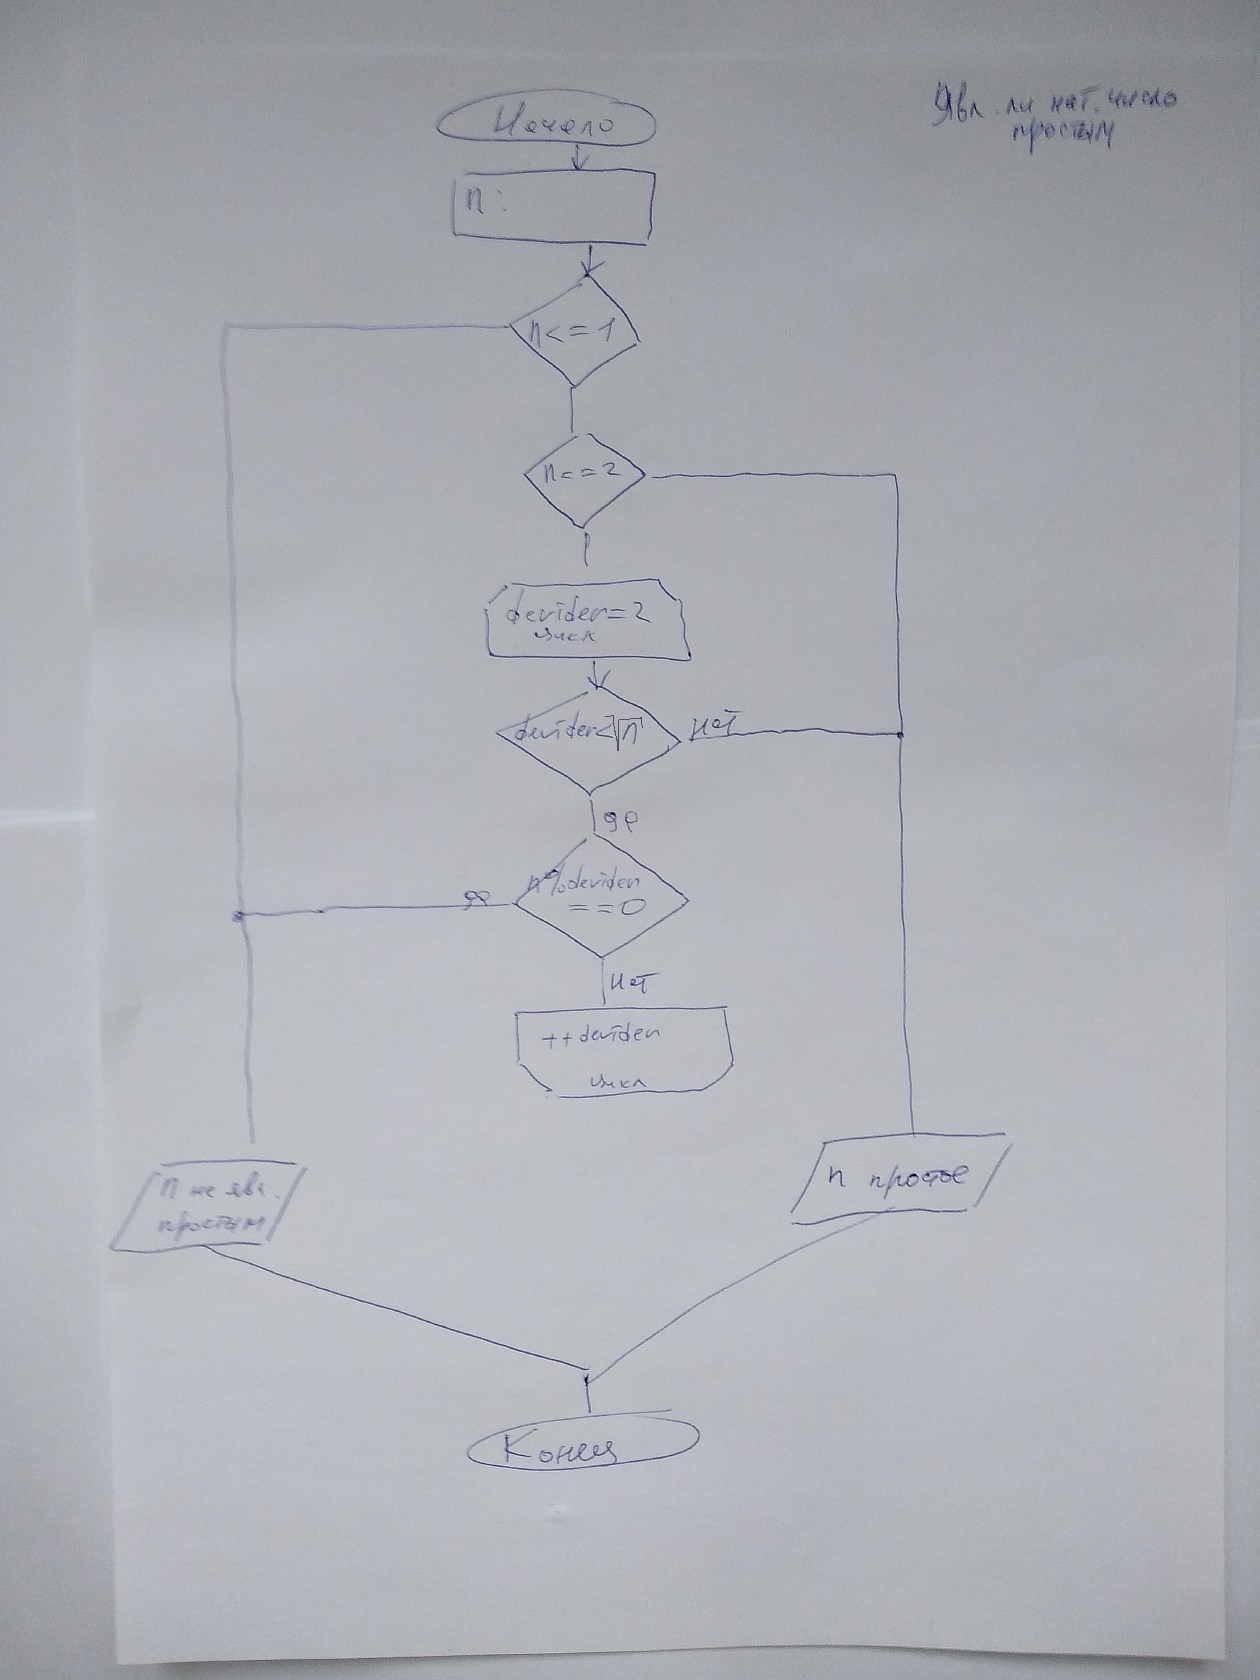 Явл. ли нат. число
простым
Начало
n:
n<=1
n<==2
devider=2
цикл
devider<√n
нет
да
n%devider
==0
да
нет
++devider
цикл
n не явл.
простым
n простое
Конец